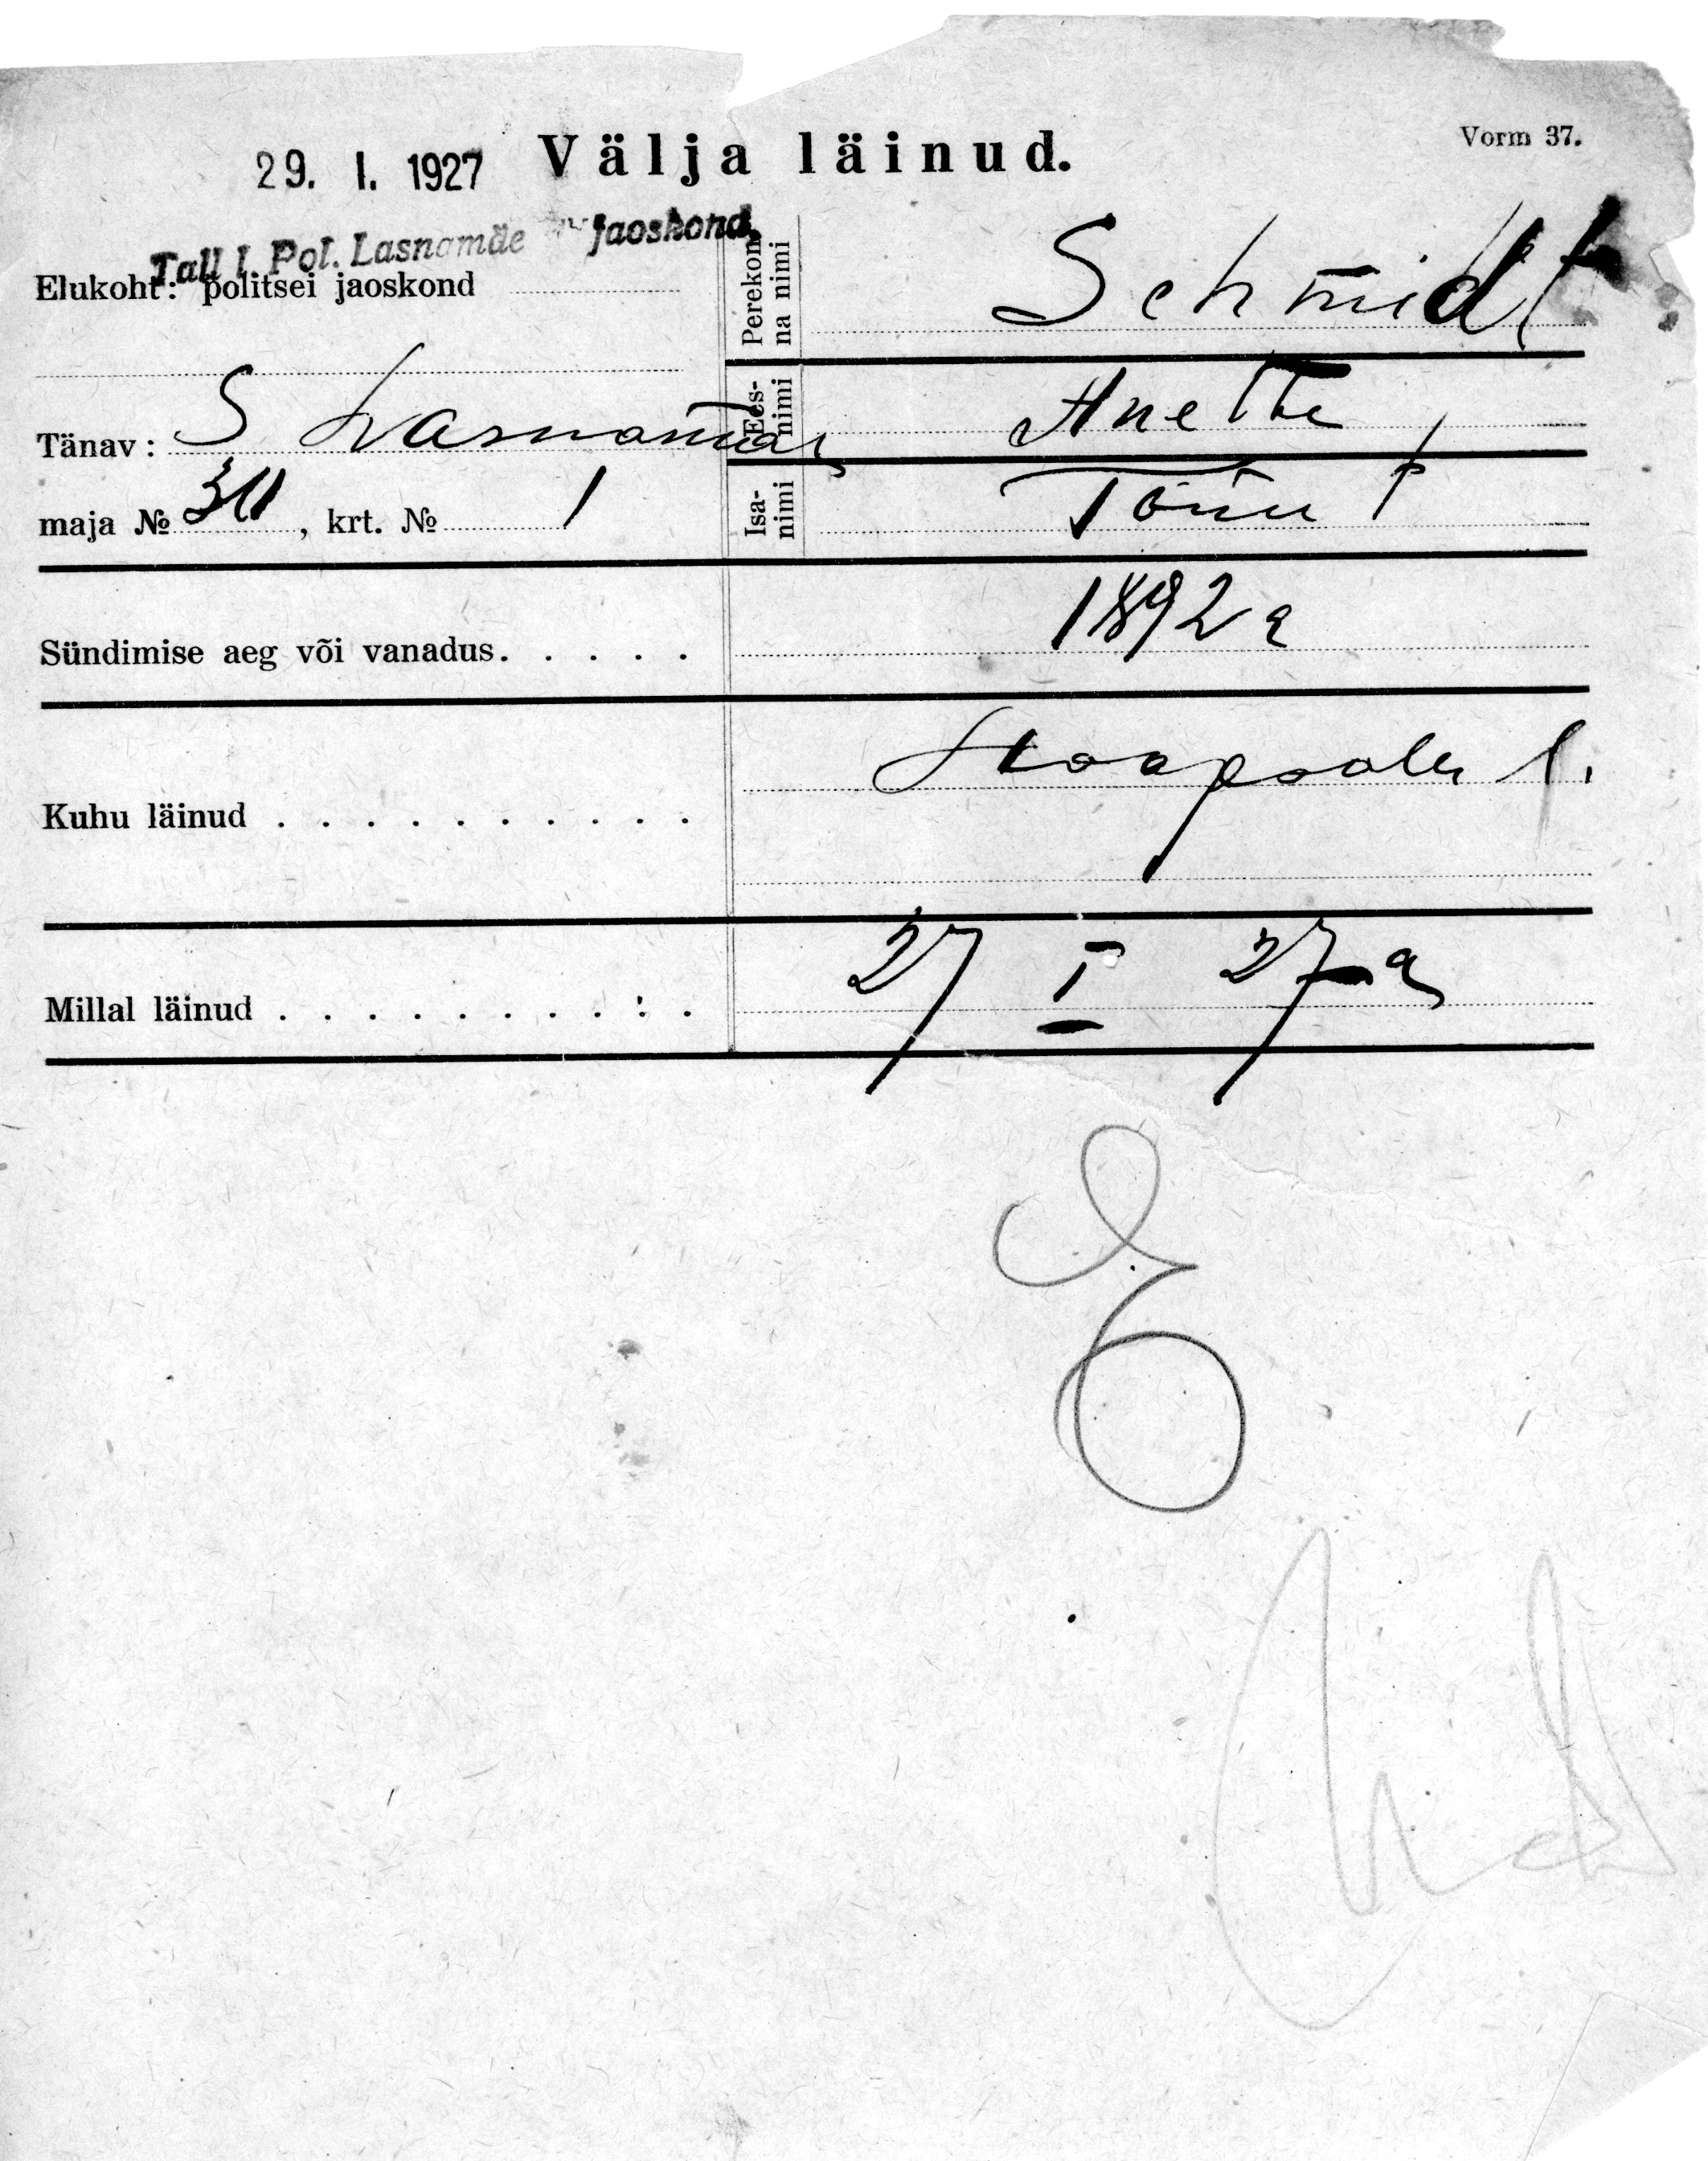 Vorm 37.
29. I. 1927 Välja läinud.
Tall. I. Pol. Lasnamäe jaoskond.
Elukoht: politsei jaoskond
Perekonna nimi Schmidt
Tänav: S Lasnamäe
Eesnimi Anette
maja № , krt. № 1
Isanimi Tõnu t
Sündimise aeg või vanadus. . . . . 1892 a
Kuhu läinud . . . . . . . . . . Haapsalu l.
Millal läinud . . . . . . . . . . 27 I 27 a
E